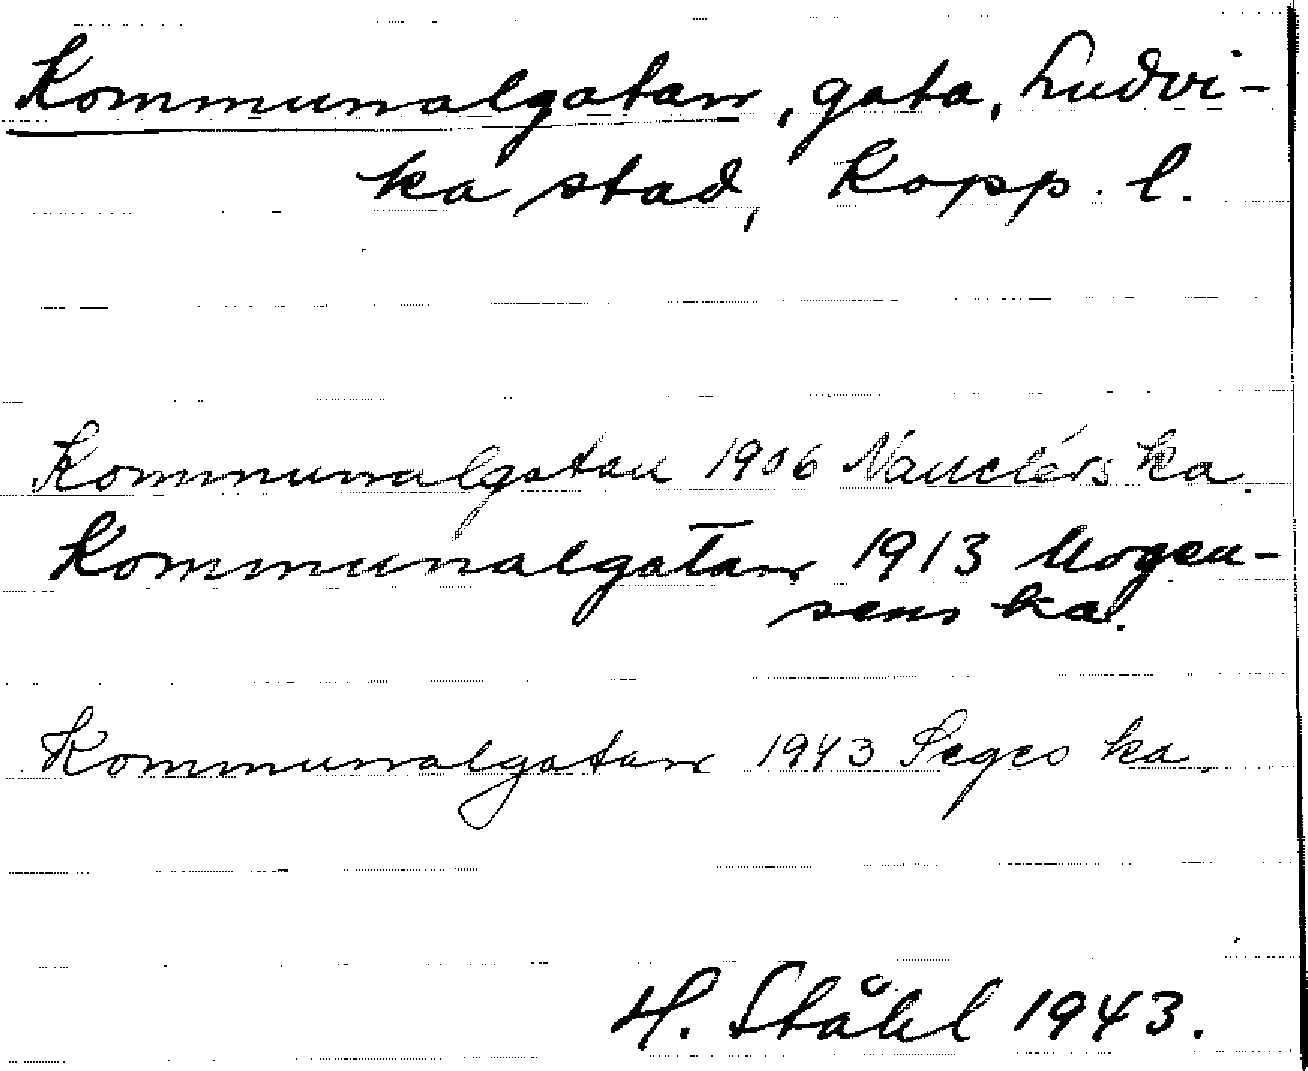 Kommunalgatan, gata, Ludvi-
ka stad, Kopp. l.
Kommunalgatan 1906 Nauclérs ka.
Kommunalgatan 1913 Mogen-
sens ka.
Kommunalgatan 1943 Seges ka.
H. Ståhl 1943.